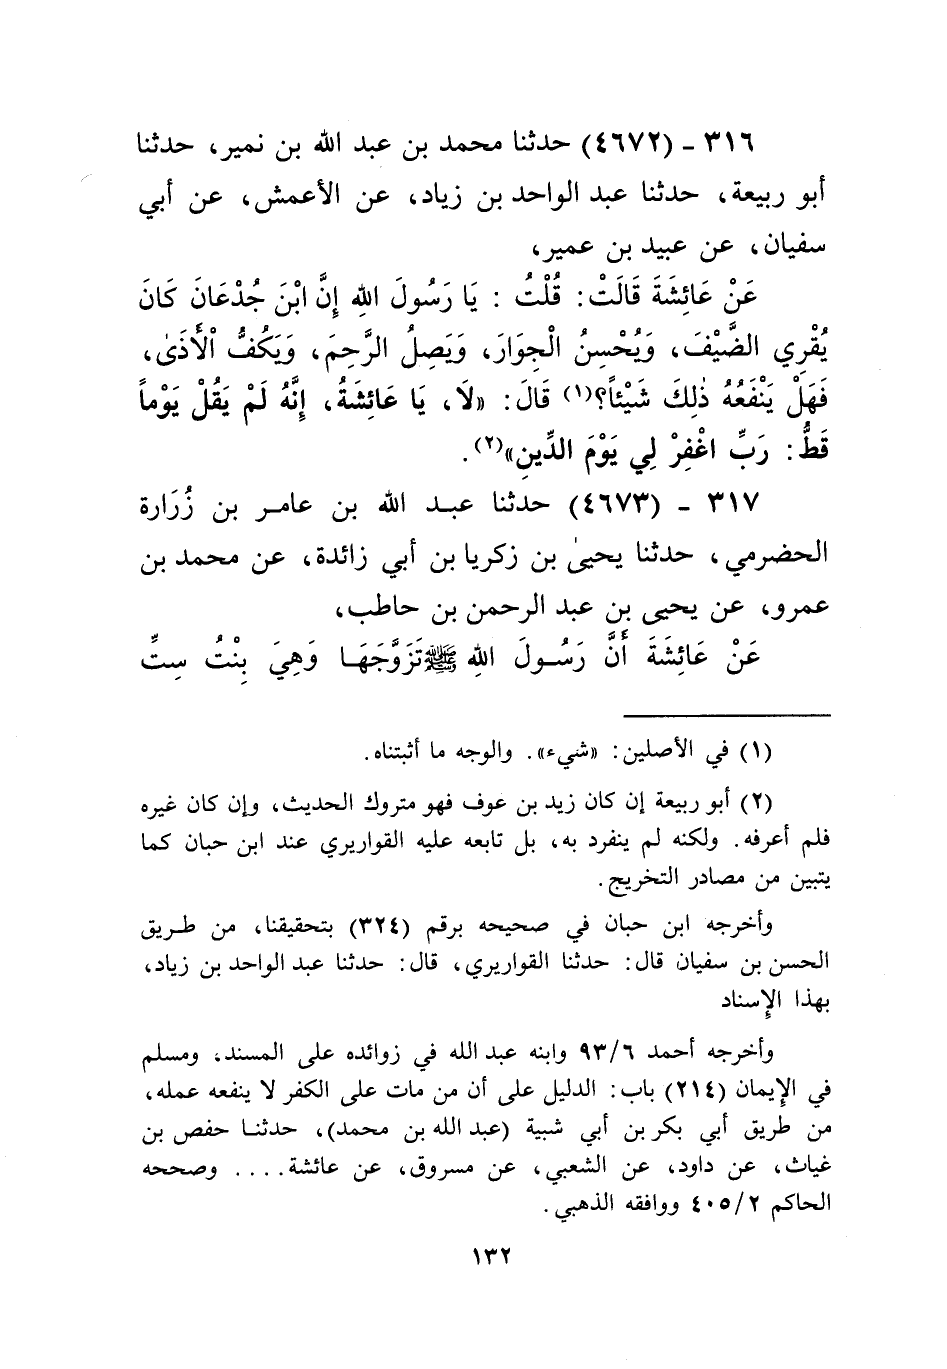 ٣١٦ - (٤٦٧٢) حدثنا محمد بن عبد الله بن نمير، حدثنا
أبو ربيعة، حدثنا عبد الواحد بن زياد، عن الأعمش، عن أبي
سفيان، عن عبيد بن عمير،
عَنْ عَائِشَةَ قَالَتْ: قُلْتُ : يَا رَسُولَ اللهِ إِنَّ ابْنَ جُدْعَانَ كَانَ
يُقْرِي الضَّيْفَ، وَيُحْسِنُ الْجِوَارَ، وَيَصِلُ الرَّحِمَ، وَيَكُفُّ الْأَذَىٰ،
فَهَلْ يَنْفَعُهُ ذٰلِكَ شَيْئاً؟(١) قَالَ: «لَا، يَا عَائِشَةُ، إِنَّهُ لَمْ يَقُلْ يَوْماً
قَطُّ: رَبِّ اغْفِرْ لِي يَوْمَ الدِّينِ»(٢).
٣١٧ - (٤٦٧٣) حدثنا عبد الله بن عامر بن زُرَارة
الحضرمي، حدثنا يحيىٰ بن زكريا بن أبي زائدة، عن محمد بن
عمرو، عن يحيى بن عبد الرحمن بن حاطب،
عَنْ عَائِشَةَ أَنَّ رَسُولَ اللهِ ﷺ تَزَوَّجَهَا وَهِيَ بِنْتُ سِتِّ
(١) في الأصلين: «شيء». والوجه ما أثبتناه.
(٢) أبو ربيعة إن كان زيد بن عوف فهو متروك الحديث، وإن كان غيره
فلم أعرفه. ولكنه لم ينفرد به، بل تابعه عليه القواريري عند ابن حبان كما
يتبين من مصادر التخريج.
وأخرجه ابن حبان في صحيحه برقم (٣٢٤) بتحقيقنا، من طريق
الحسن بن سفيان قال: حدثنا القواريري، قال: حدثنا عبد الواحد بن زياد،
بهذا الإِسناد
وأخرجه أحمد ٩٣/٦ وابنه عبد الله في زوائده على المسند، ومسلم
في الإِيمان (٢١٤) باب: الدليل على أن من مات على الكفر لا ينفعه عمله،
من طريق أبي بكر بن أبي شيبة (عبد الله بن محمد)، حدثنا حفص بن
غياث، عن داود، عن الشعبي، عن مسروق، عن عائشة.... وصححه
الحاكم ٤٠٥/٢ ووافقه الذهبي.
١٣٢